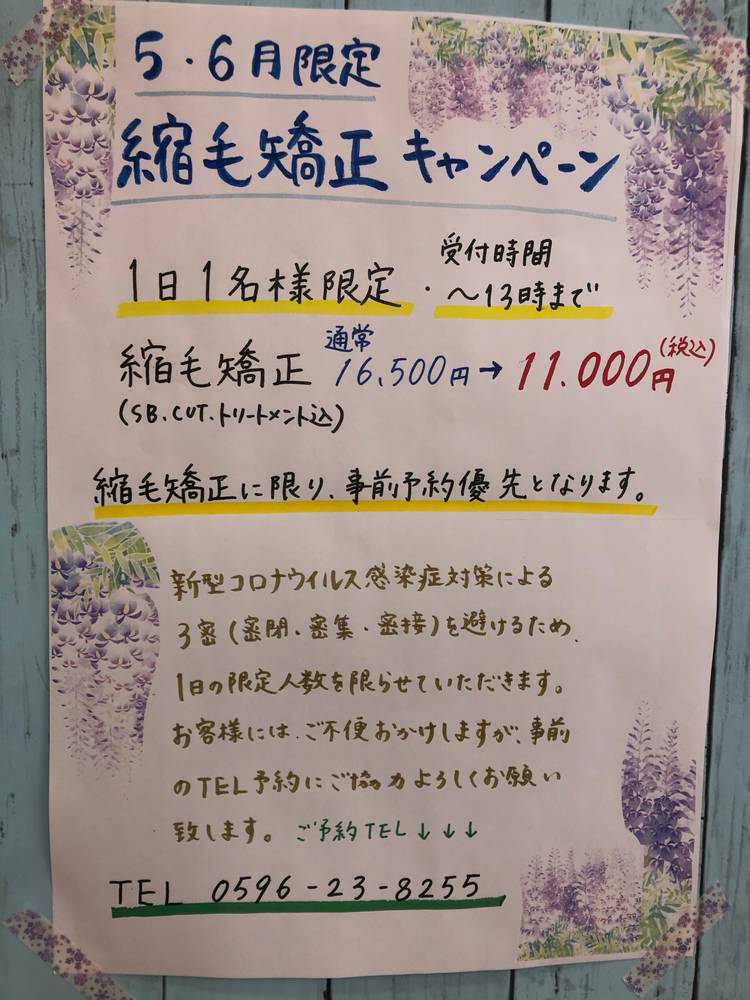 5・6月限定
縮毛矯正キャンペーン
1日1名様限定・受付時間
〜13時まで
縮毛矯正 通常16,500円→11.000円(税込)
(SB.CUT.トリートメント込)
縮毛矯正に限り、事前予約優先となります。
新型コロナウイルス感染症対策による
3密(密閉、密集・密接)を避けるため、
1日の限定人数を限らせていただきます。
お客様には、ご不便おかけしますが、事前
のTEL予約にご協力よろしくお願い
致します。 ご予約TEL↓↓↓
TEL 0596-23-8255